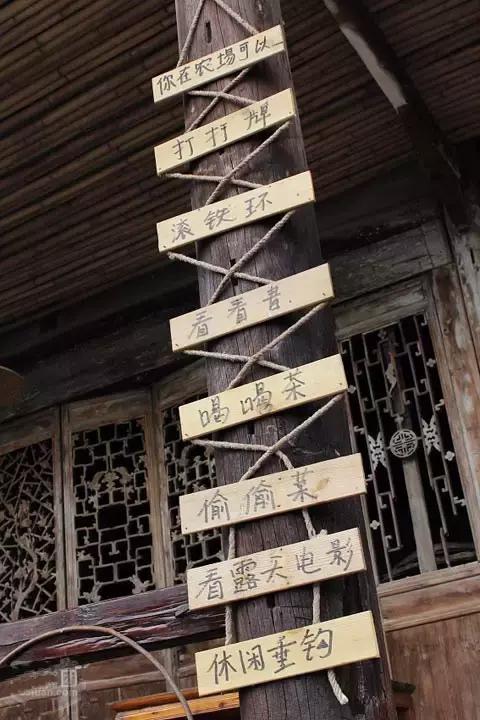 你在农場可以
打打牌
滚铁环
看看書
喝喝茶
偷偷菜
看露天电影
休闲垂钩